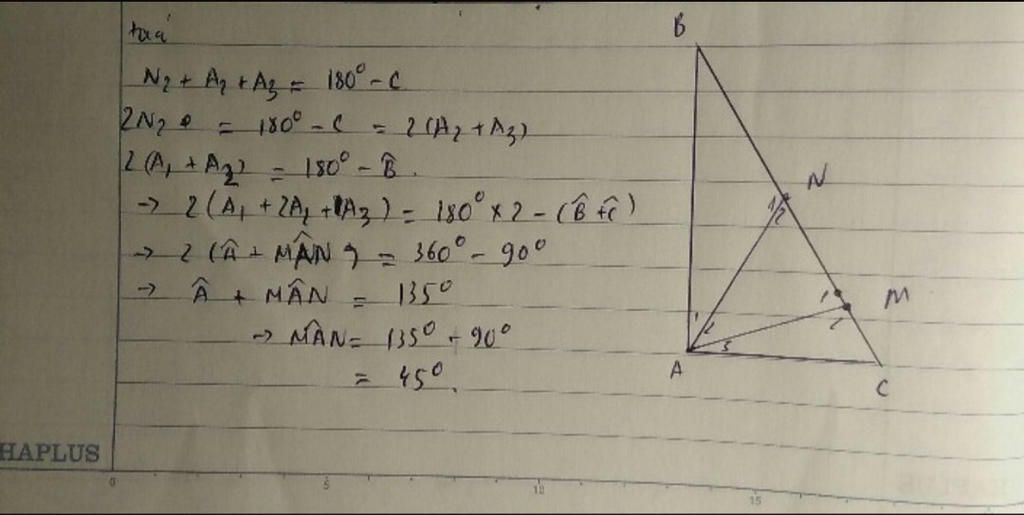 N₂ + A₂ + A₃ = 180° - C
2N₂ = 180° - C = 2(A₂ + A₃)
2(A₁ + A₂) = 180° - B̂.
→ 2(A₁ + 2A₂ + A₃) = 180° × 2 - (B̂ + Ĉ)
→ 2(Â + MÂN) = 360° - 90°
→ Â + MÂN = 135°
→ MÂN = 135° - 90°
= 45°.
B
N
1 2
M
1
2
1 2 3
A
C
HAPLUS
0 5 10 15